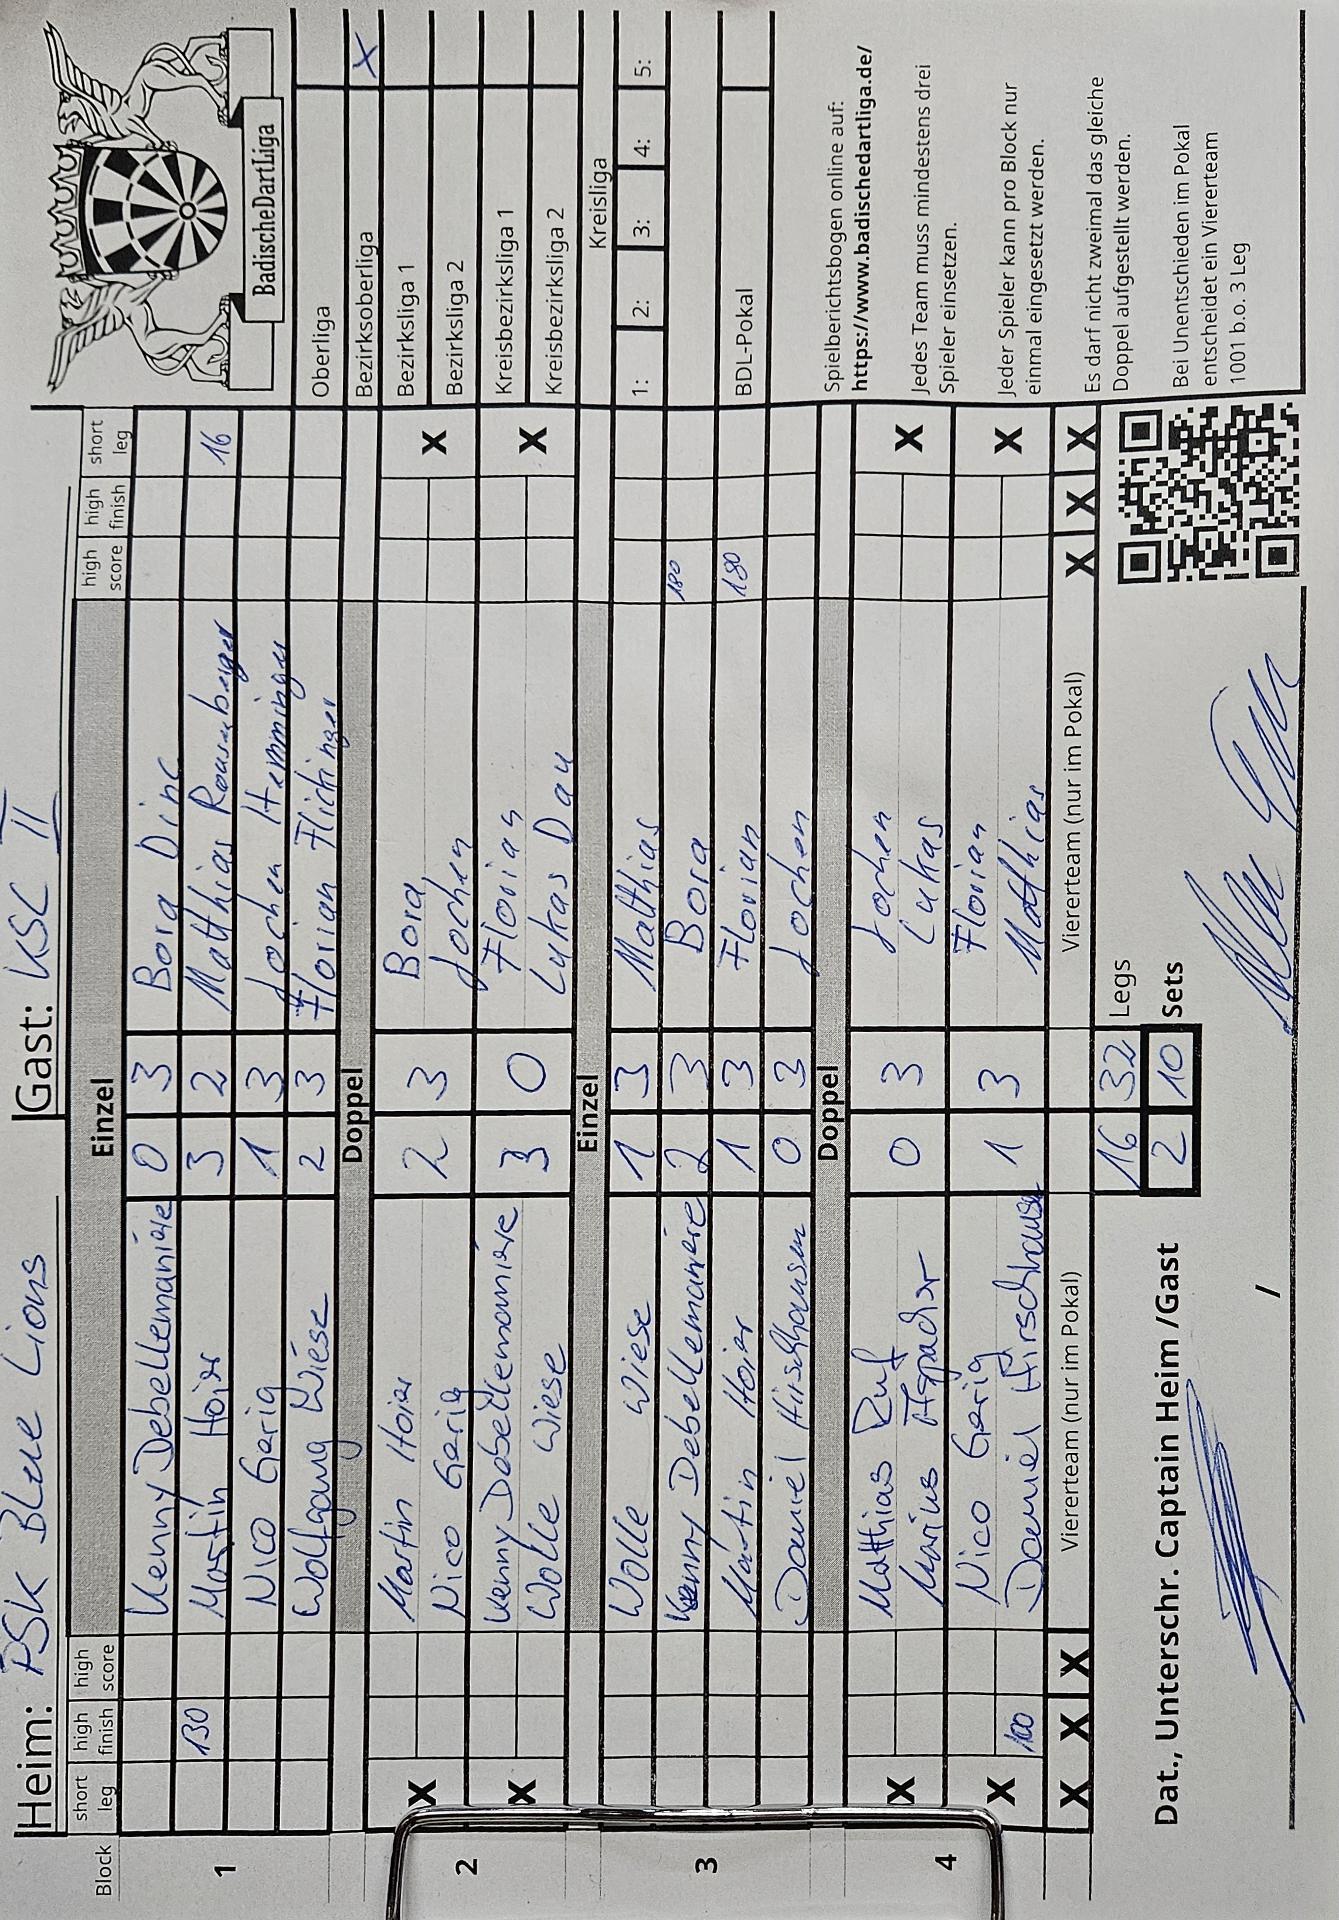 Heim: PSK Blue Lions Gast: KSC II
Block short leg high finish high score Einzel high score high finish short leg
1
Kenny Debellemanière 0 3 Bora Dinc
130 Martin Hoier 3 2 Matthias Rausenberger 16
Nico Gerig 1 3 Jochen Hemminger
Wolfgang Wiese 2 3 Florian Flickinger
Doppel
2
X Martin Hoier 2 3 Bora X
Nico Gerig Jochen
X Kenny Debellemanière 3 0 Florian X
Wolle Wiese Lukas Dau
Einzel
3
Wolle Wiese 1 3 Matthias
Kenny Debellemanière 2 3 Bora 180
Martin Hoier 1 3 Florian 180
Daniel Hirschhausen 0 3 Jochen
Doppel
4
X Matthias Ruf 0 3 Jochen X
Marius Aspacher Lukas
X Nico Gerig 1 3 Florian X
100 Daniel Hirschhausen Matthias
X X X Viererteam (nur im Pokal) Viererteam (nur im Pokal) X X X
16 32 Legs
2 10 Sets
Dat., Unterschr. Captain Heim /Gast
/
BadischeDartLiga
Oberliga
Bezirksoberliga X
Bezirksliga 1
Bezirksliga 2
Kreisbezirksliga 1
Kreisbezirksliga 2
Kreisliga
1: 2: 3: 4: 5:
BDL-Pokal
Spielberichtsbogen online auf:
https://www.badischedartliga.de/
Jedes Team muss mindestens drei
Spieler einsetzen.
Jeder Spieler kann pro Block nur
einmal eingesetzt werden.
Es darf nicht zweimal das gleiche
Doppel aufgestellt werden.
Bei Unentschieden im Pokal
entscheidet ein Viererteam
1001 b.o. 3 Leg